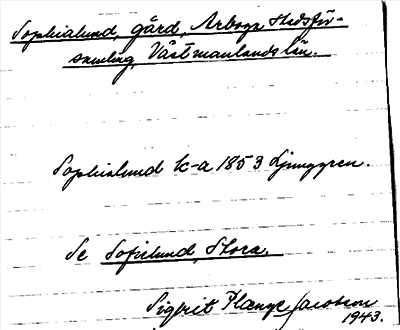 Sophialund, gård, Arboga stadsför-
samling, Västmanlands län.
Sophialund k-a 1853 Ljunggren.
Se Sofielund, Stora.
Sigfrit Plænge Jacobson
1943.